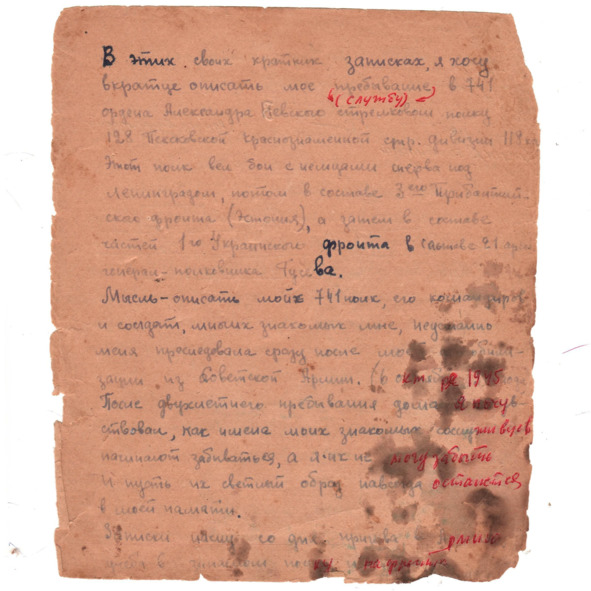 В этих своих кратких записках, я хочу
вкратце описать мое пребывание в 741
(службу)
ордена Александра Невского стрелковом полку
128 Псковской краснознаменной стр. дивизии 118
Этот полк вел бои с немцами сперва под
Ленинградом, потом в составе 3его Прибалтий-
ского фронта (Эстония), а затем в составе
частей 1го Украинского фронта в составе 21 арм
генерал-полковника Гусева.
Мысль-описать мой 741 полк, его командиров
и солдат, многих знакомых мне, неустанно
меня преследовала сразу после моей
зации из Советской Армии. (6 октября 1945
После двухлетнего пребывания дома я почув
ствовал, как имена моих знакомых сослуживцев
начинают забываться, а я их не могу забыть
И пусть их светлый образ навсегда останется
в моей памяти.
Записки начну со дня призыва в Армию
на фронте